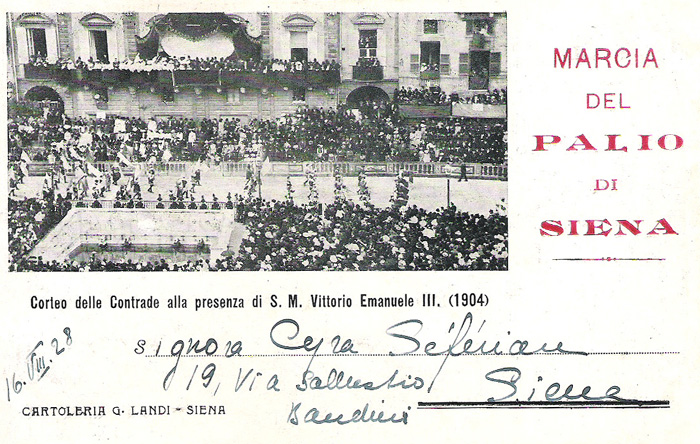 MARCIA
DEL
PALIO
DI
SIENA
Corteo delle Contrade alla presenza di S. M. Vittorio Emanuele III. (1904)
16. VIII. 28
Signora Cyra Séférian
19, Via Sallustio Siena
Bandini
CARTOLERIA G. LANDI - SIENA